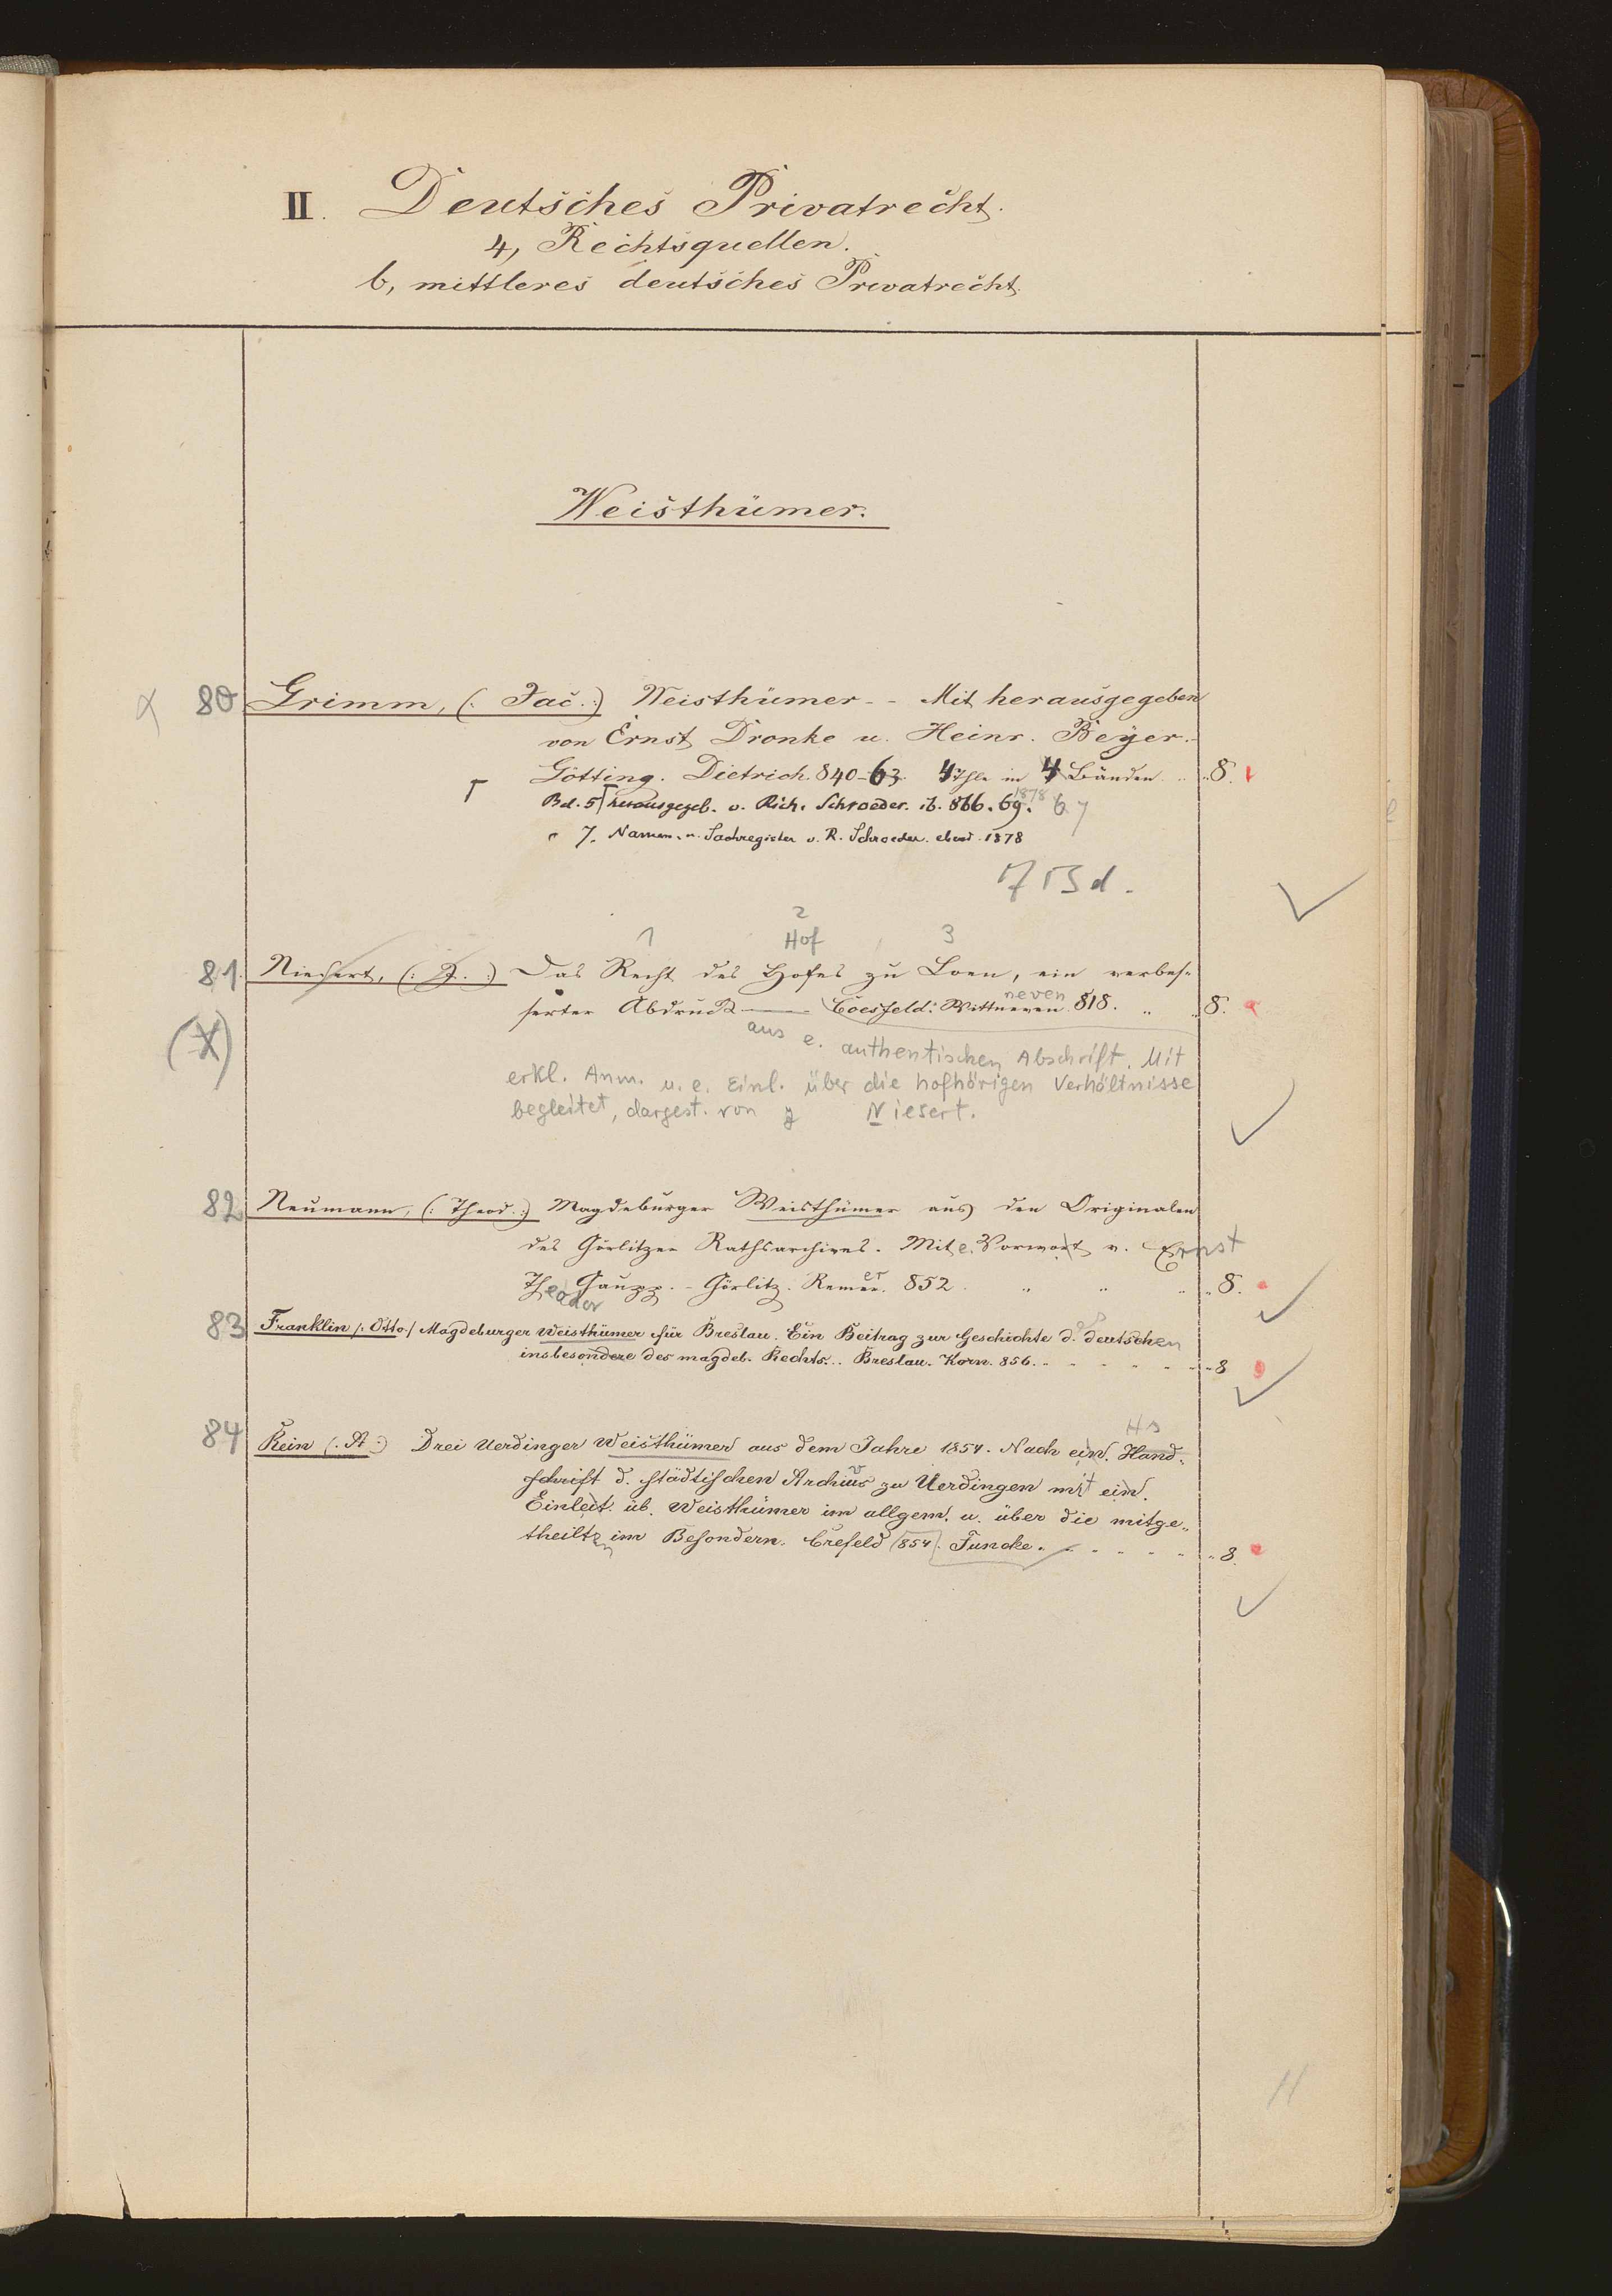 II. Deutsches Privatrecht.
4, Rechtsquellen.
b, mittleres deutsches Privatrecht.
Weisthümer.
80 Grimm, (: Jac. :) Weisthümer - - Mit herausgegeben
von Ernst Dronke u. Heinr. Beyer. -
Götting. Dietrich. 840-63. 4 Thle in 4 Bänden. 8.
Bd. 5 herausgegeb. v. Rich. Schroeder. ib. 866. 69. 1878
" 7. Namen- u. Sachregister v. R. Schroeder. ebend. 1878
7 Bd.
1 2 3
Hof
81. Niesert, (: J. :) Das Recht des Hofes zu Loen, ein verbes-
serter Abdruck —— Coesfeld: Wittneven 818. " " 8.
neven
(X)
aus e. authentischen Abschrift. Mit
erkl. Anm. u. e. Einl. über die hofhörigen Verhältnisse
begleitet, dargest. von J Niesert.
82 Neumann, (: Theod. :) Magdeburger Weisthümer aus den Originalen
des Görlitzer Rathsarchives. Mit e. Vorwort v. Ernst
Theodor Gaupp. - Görlitz. Remer. 852. " " " 8.
83 Franklin /: Otto :/ Magdeburger Weisthümer für Breslau. Ein Beitrag zur Geschichte d. deutschen
insbesondere des magdeb. Rechts... Breslau. Korn. 856. " 8
84 Rein (: A :) Drei Uerdinger Weisthümer aus dem Jahre 1454. Nach ein. Hand-
Hs
schrift d. städtischen Archivs zu Uerdingen mit ein.
Einleit. üb. Weisthümer im allgem. u. über die mitge-
theilten im Besondern. Crefeld 1854. Funcke. " 8.
11